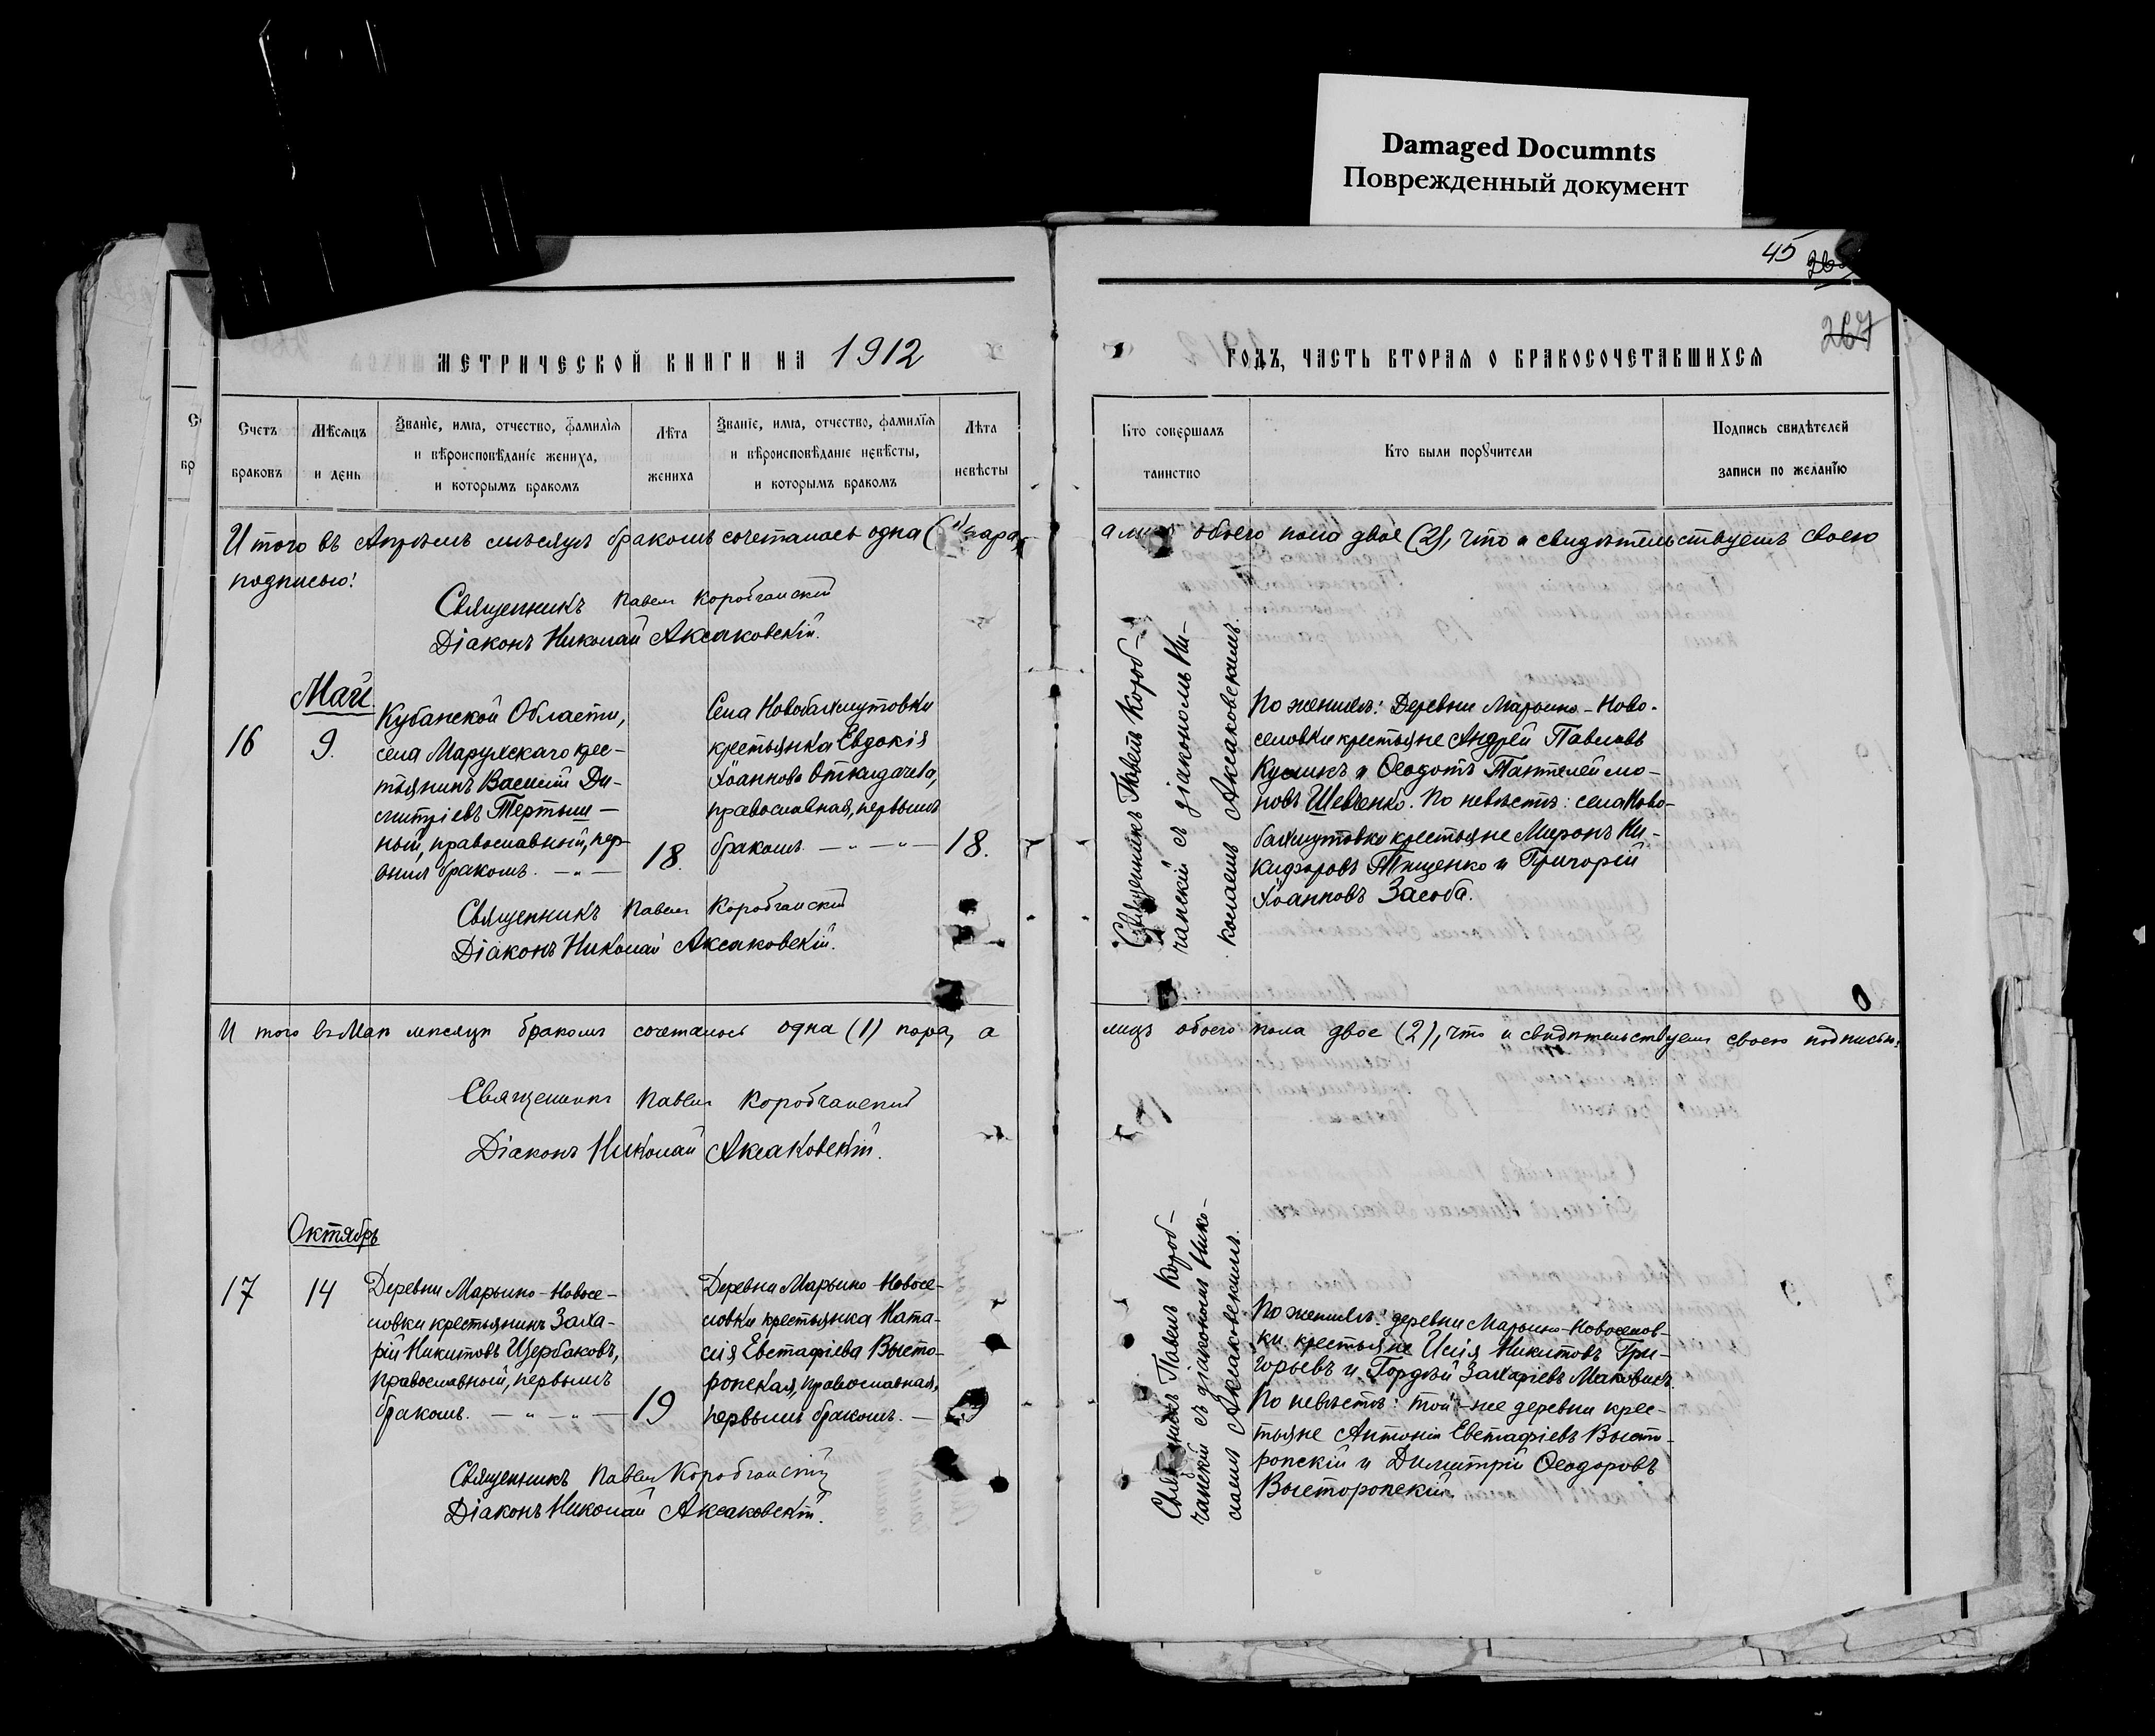 Damaged Documnts
Поврежденный документ
45
267
МЕТРИЧЕСКОЙ КНИГИ НА 1912
ГОДЪ, ЧАСТЬ ВТОРАЯ О БРАКОСОЧЕТАВШИХСЯ
Счетъ
браковъ
Мѣсяцъ
и день
Званіе, имя, отчество, фамилія
и вѣроисповѣданіе жениха,
и которымъ бракомъ
Лѣта
жениха
Званіе, имя, отчество, фамилія
и вѣроисповѣданіе невѣсты,
и которымъ бракомъ
Лѣта
невѣсты
Кто совершалъ
таинство
Кто были поручители
Подпись свидѣтелей
записи по желанію
Итого въ Апрѣлѣ мѣсяцѣ бракомъ сочеталось одна (1) пара,
а лицъ обоего пола двое (2), что и свидѣтельствуемъ своею
подписью:
Священникъ Павелъ Коробчанскій
Діаконъ Николай Аксаковскій.
Май
16
9.
Кубанской Области,
села Марухскаго крес-
тьянинъ Василій Ди-
митріевъ Тертыш-
ный, православный, пер-
вымъ бракомъ. — „ —
18.
Села Новобахмутовки
крестьянка Евдокія
Іоаннова Откидачева,
православная, первымъ
бракомъ. — „ — „ —
18.
Священникъ Павелъ Короб-
чанскій съ діакономъ Ни-
колаемъ Аксаковскимъ.
По женихѣ: Деревни Марьино-Ново-
селовки крестьяне Андрей Павловъ
Куликъ и Ѳеодотъ Пантелеймо-
новъ Шевченко. По невѣстѣ: села Ново-
бахмутовки крестьяне Миронъ Ни-
кифоровъ Тищенко и Григорій
Іоанновъ Засоба.
Священникъ Павелъ Коробчанскій
Діаконъ Николай Аксаковскій.
Итого въ Маѣ мѣсяцѣ бракомъ сочеталось одна (1) пара, а
лицъ обоего пола двое (2), что и свидѣтельствуемъ своею подписью:
Священникъ Павелъ Коробчанский
Діаконъ Николай Аксаковскій.
Октябрь
17
14
Деревни Марьино-Новосе-
ловки крестьянинъ Заха-
рій Никитовъ Щербаковъ,
православный, первымъ
бракомъ. — „ — „ —
19
Деревни Марьино-Новосе-
ловки крестьянка Ната-
лія Евстафіева Высто-
ропская, православная,
первымъ бракомъ. —
19
Священникъ Павелъ Короб-
чанскій съ діакономъ Нико-
лаемъ Аксаковскимъ.
По женихѣ: деревни Марьино-Новоселов-
ки крестьяне Исія Никитовъ Гри-
горьевъ и Гордѣй Захаріевъ Маковикъ.
По невѣстѣ: той-же деревни крес-
тьяне Антоній Евстафіевъ Высто-
ропскій и Димитрій Ѳеодоровъ
Выстороиский.
Священникъ Павелъ Коробчанскій
Діаконъ Николай Аксаковскій.